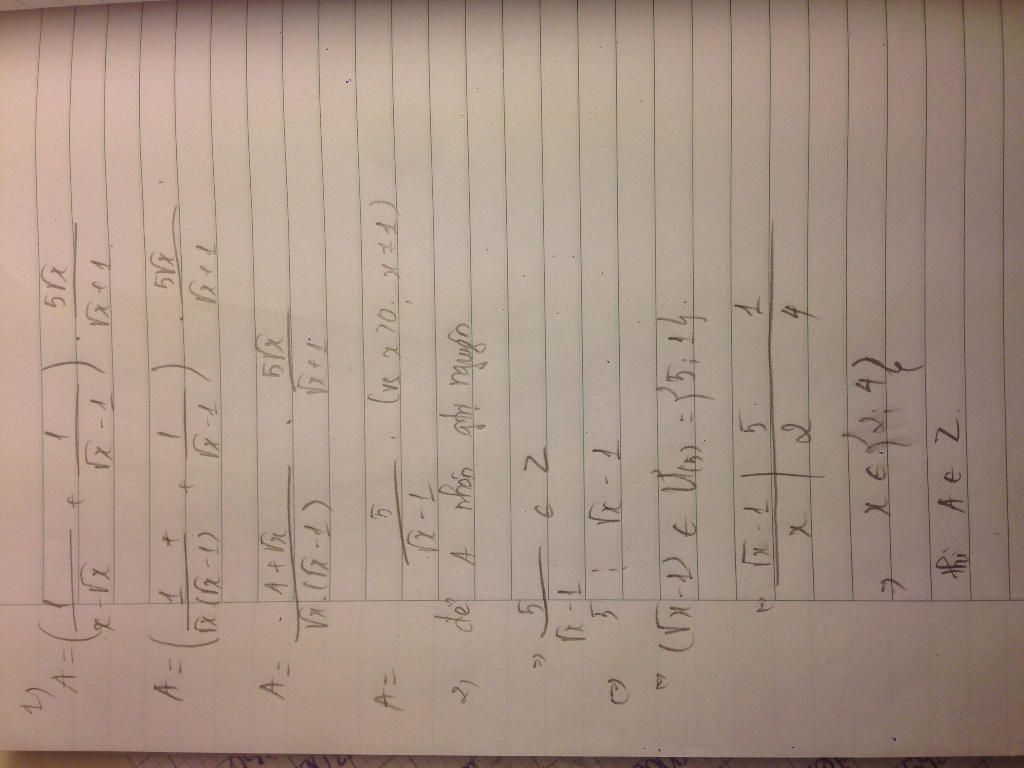 1)
A = ( 1/(x - √x) + 1/(√x - 1) ) . 5√x/(√x + 1)
A = ( 1/(√x(√x - 1)) + 1/(√x - 1) ) . 5√x/(√x + 1)
A = (1 + √x)/(√x.(√x - 1)) . 5√x/(√x + 1)
A = 5/(√x - 1) . (x > 0, x ≠ 1)
2) để A nhận giá trị nguyên
=> 5/(√x - 1) ∈ Z
(=) 5 ⋮ √x - 1
(√x - 1) ∈ Ư(5) = {5; 1}
√x - 1 | 5 1
x | 2 4
=> x ∈ {2; 4}
thì A ∈ Z